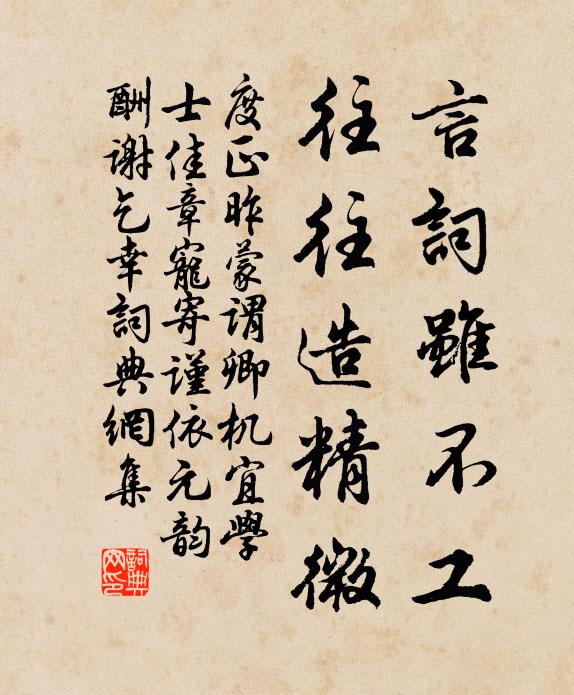 言詞雖不工
往往造精微
度正昨蒙謂卿机宜學
士佳章寵寄謹依元韵
酬謝乞幸詞典網集
詞典网印